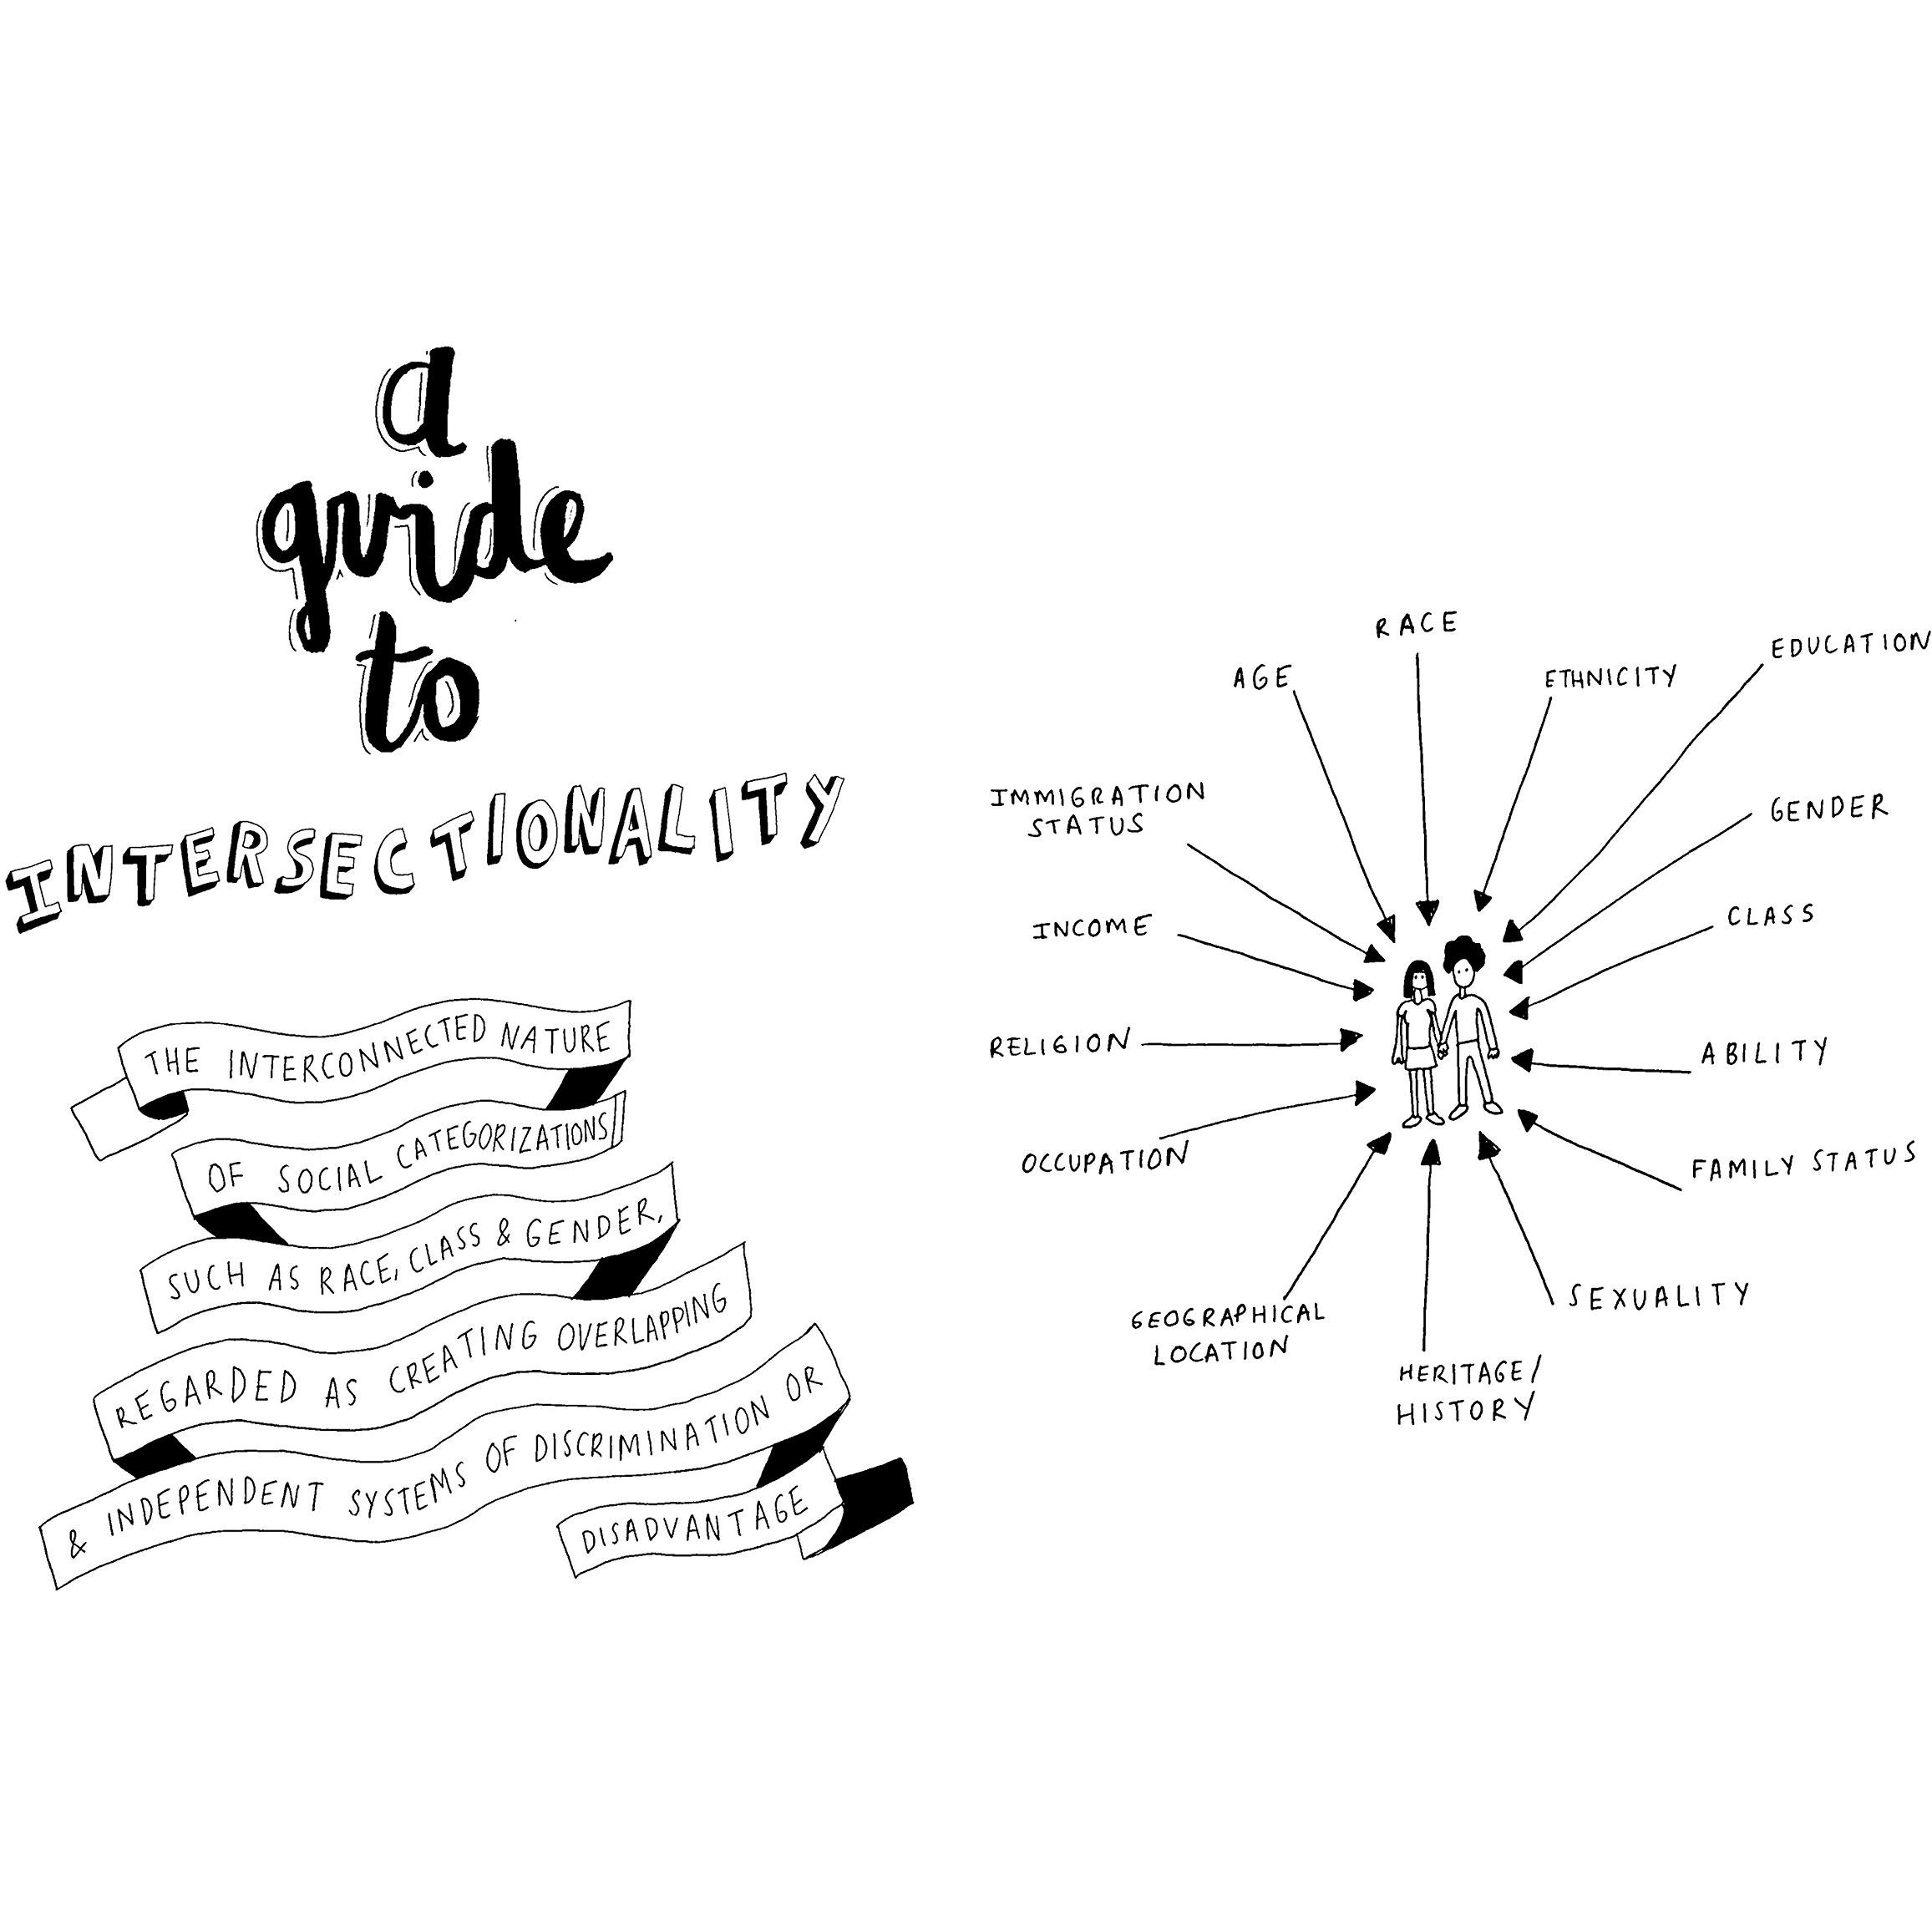 a
guide
to
INTERSECTIONALITY
THE INTERCONNECTED NATURE
OF SOCIAL CATEGORIZATIONS
SUCH AS RACE, CLASS & GENDER,
REGARDED AS CREATING OVERLAPPING
& INDEPENDENT SYSTEMS OF DISCRIMINATION OR
DISADVANTAGE
RACE
ETHNICITY
EDUCATION
GENDER
CLASS
ABILITY
FAMILY STATUS
SEXUALITY
HERITAGE/
HISTORY
GEOGRAPHICAL
LOCATION
OCCUPATION
RELIGION
INCOME
IMMIGRATION
STATUS
AGE